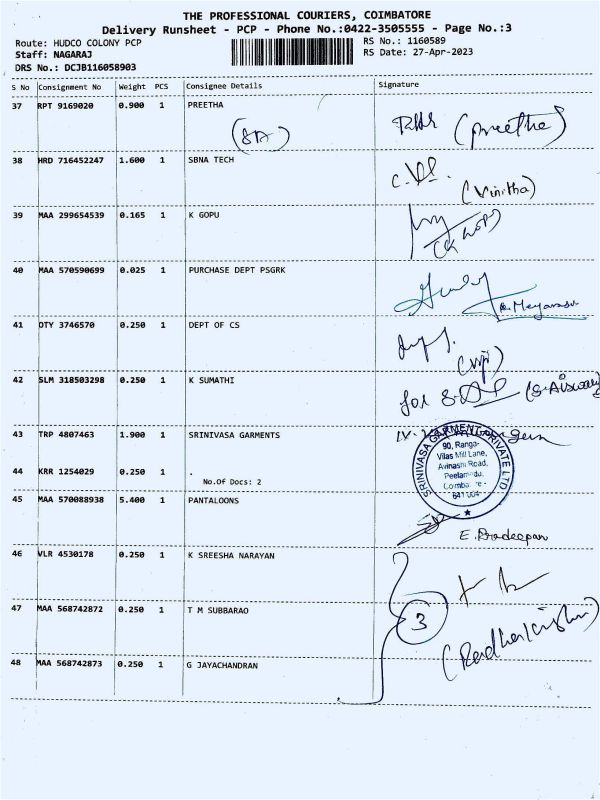 THE PROFESSIONAL COURIERS, COIMBATORE
Delivery Runsheet - PCP - Phone No.:0422-3505555 - Page No.:3
Route: HUDCO COLONY PCP
RS No.: 1160589
Staff: NAGARAJ
RS Date: 27-Apr-2023
DRS No.: DCJB116058903
S No Consignment No Weight PCS Consignee Details Signature
37 RPT 9169020 0.900 1 PREETHA
(Preetha)
38 HRD 716452247 1.600 1 SBNA TECH
(Vinitha)
39 MAA 299654539 0.165 1 K GOPU
(K GOPU)
40 MAA 570590699 0.025 1 PURCHASE DEPT PSGRK
41 DTY 3746570 0.250 1 DEPT OF CS
(viji)
42 SLM 318503298 0.250 1 K SUMATHI
for
43 TRP 4807463 1.900 1 SRINIVASA GARMENTS
SRINIVASA GARMENTS PRIVATE LTD
90, Ranga-
Vilas Mill Lane,
Avinashi Road,
Peelamedu,
Coimbatore -
641 004
44 KRR 1254029 0.250 1 .
No.Of Docs: 2
45 MAA 570088938 5.400 1 PANTALOONS
E. Pradeepan
46 VLR 4530178 0.250 1 K SREESHA NARAYAN
47 MAA 568742872 0.250 1 T M SUBBARAO
3
(Radhakrishnan)
48 MAA 568742873 0.250 1 G JAYACHANDRAN